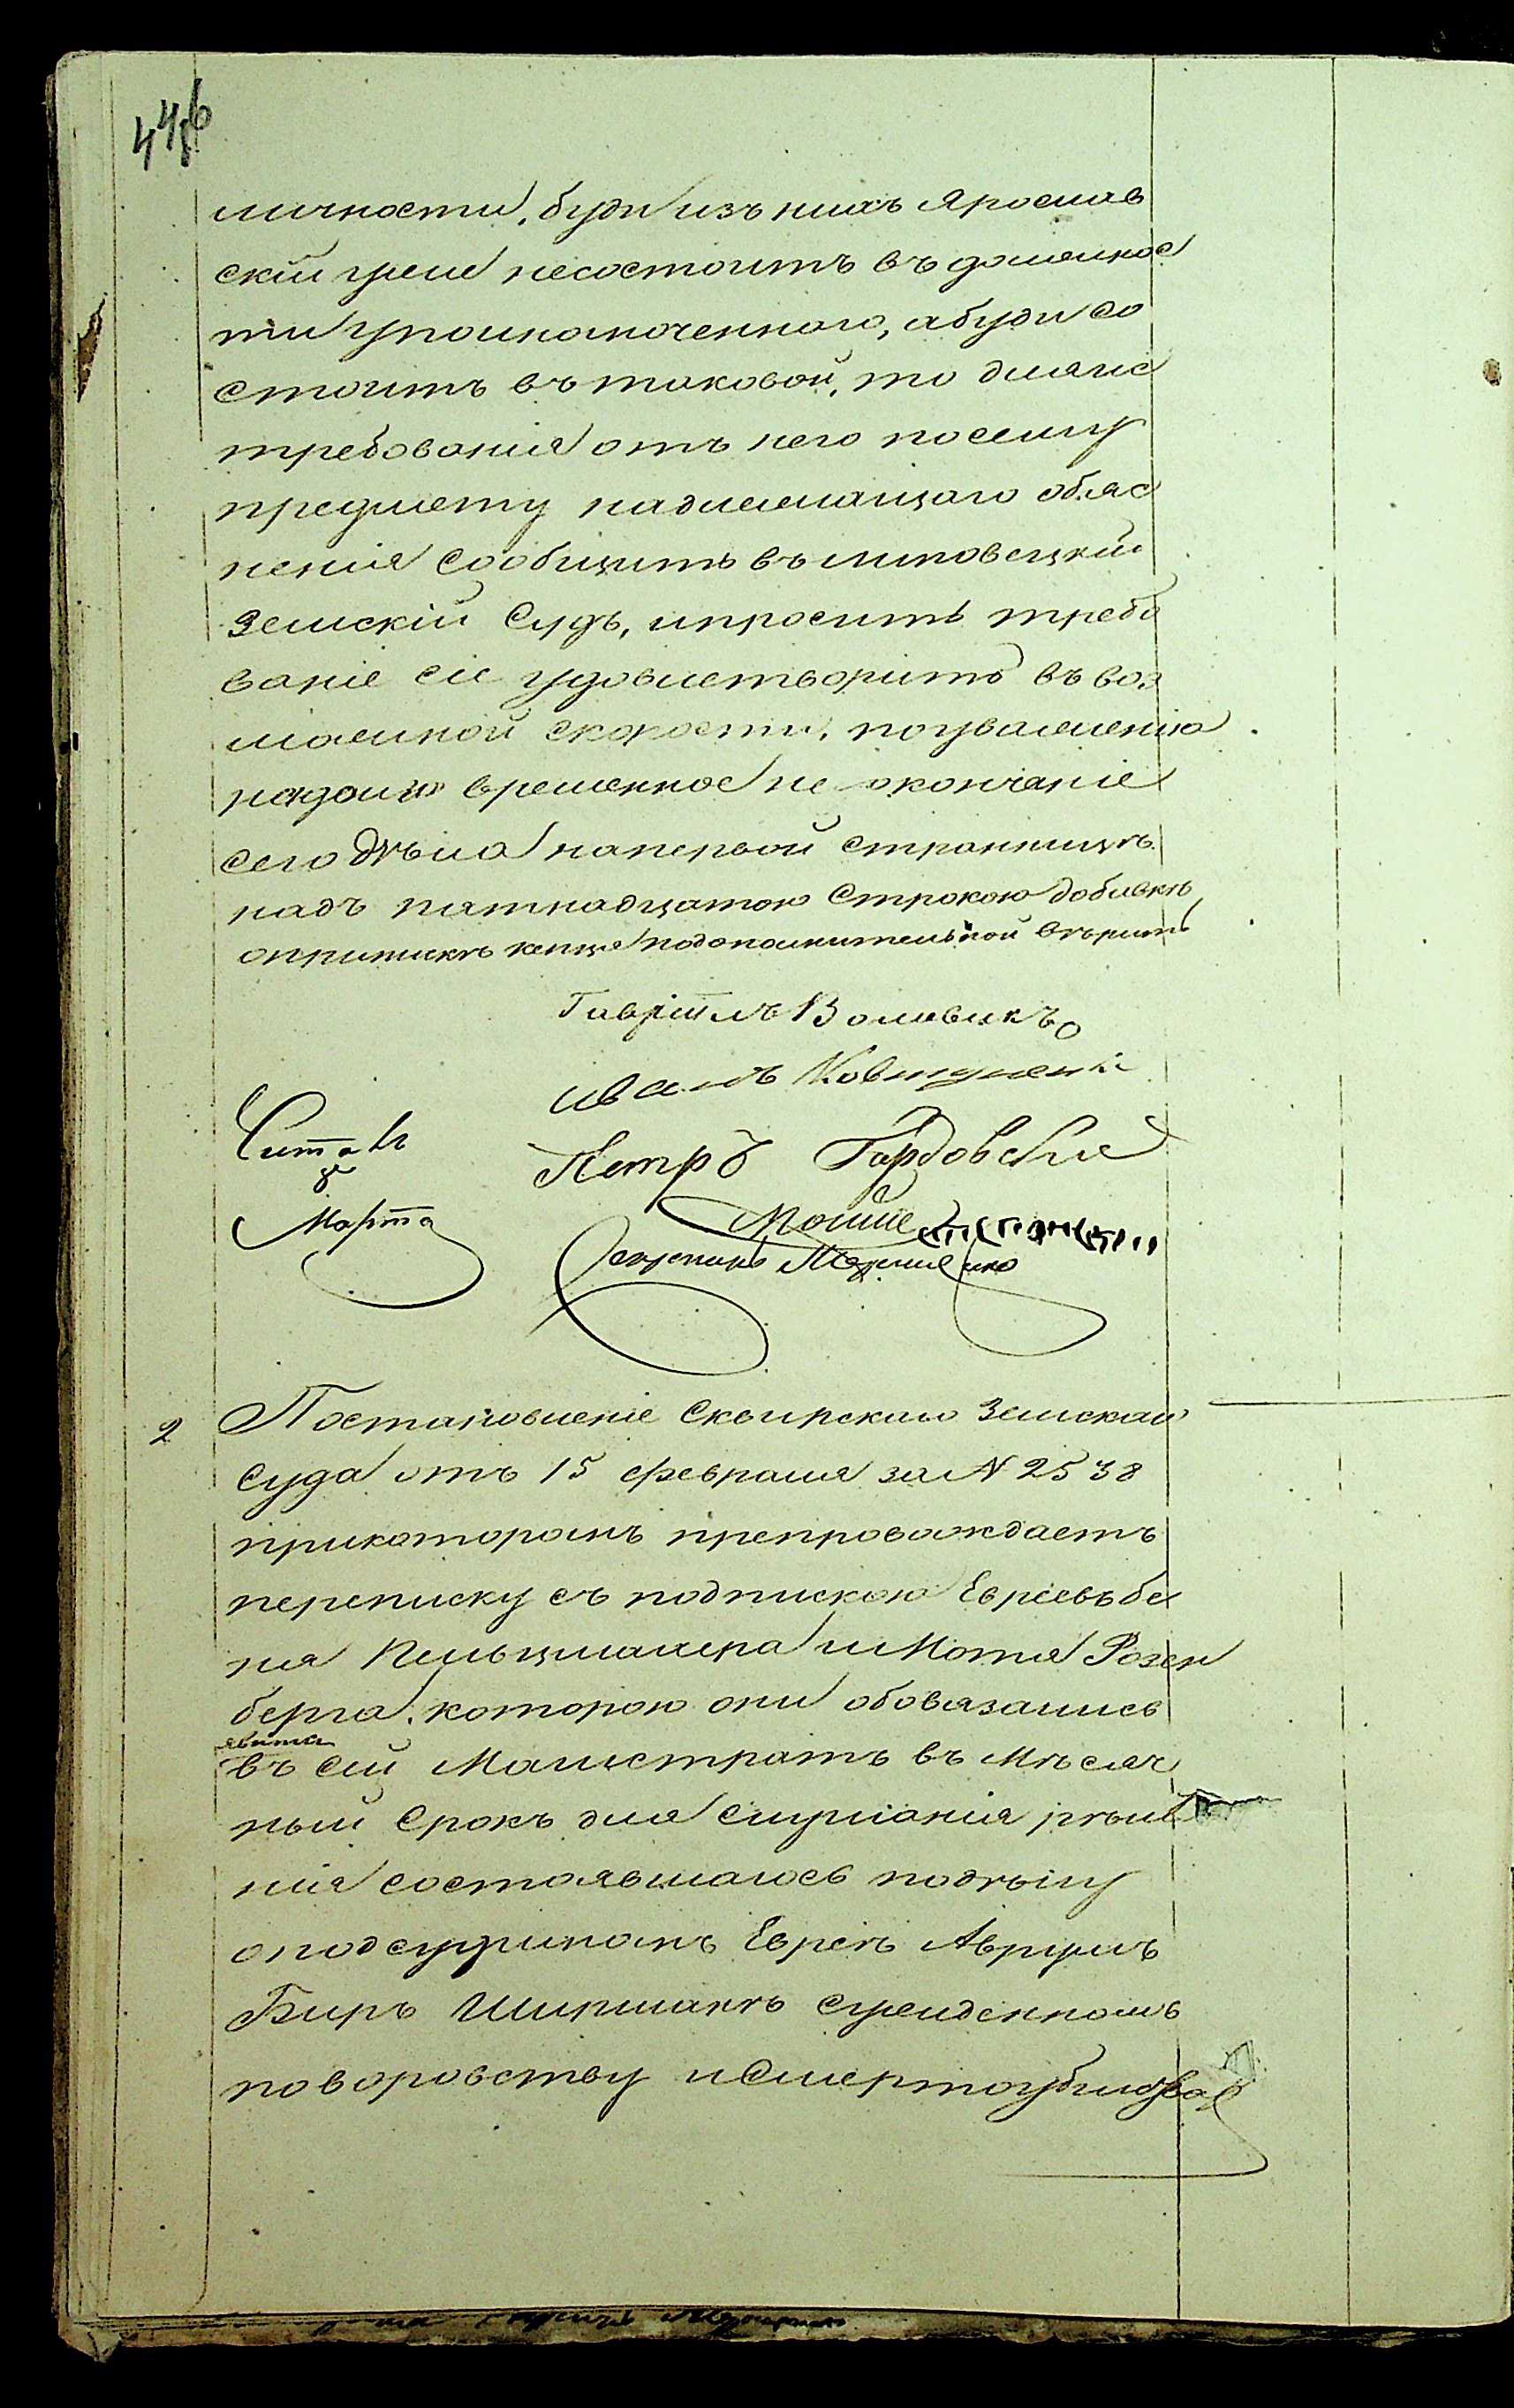 446
личности, буди изъ нихъ Ярослав
скій уже несостоитъ въ должнос
ти уполномоченнаго, а буди со
стоитъ въ таковой, то для ис
требованія отъ него по сему
предмету надлежащаго объяс
ненія сообщить въ Липовецкій
Земскій Судъ, и просить требо
ваніе сіе удовлетворить въ воз
можной скорости, по уваженію
на долго временное не окончаніе
сего дѣла на первой странницѣ
надъ пятнадцатою строкою добавкѣ
о припискѣ дополнительной вѣрить
Гавріилъ Воловикъ
Иванъ Ковтуненко
Читалъ Петръ Гордовскій
Марта Мошие
Секретарь
2 Постановленіе Сквирскаго Земскаго
Суда отъ 15 февраля за № 2538
при которомъ препровождаетъ
переписку съ подпискою Евреевъ Бе
ня Кельцмахера и Мотя Розен
берга, которою они обовязались
явится
въ сей Магистратъ въ мѣсяч
ный срокъ для слушанія рѣше
нія состоявшагось по дѣлу
о подсудимомъ Евреѣ Аврумъ
Беръ Шпрмакѣ сужденномъ
по воровству и смертоубийства